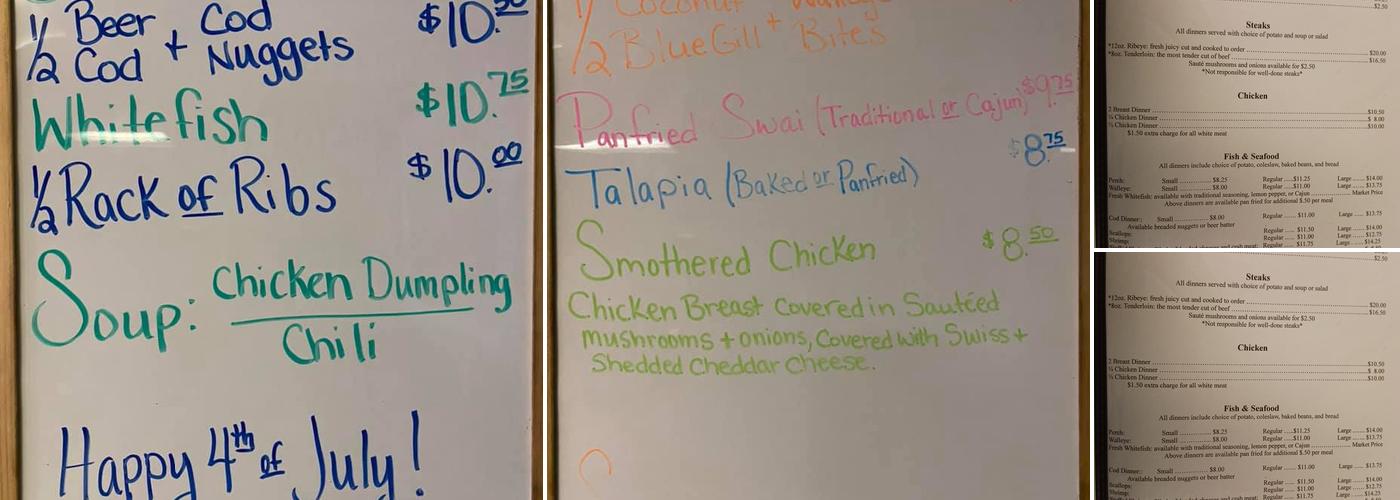 1/2 Beer Cod + Cod Nuggets $10.50
Whitefish $10.75
1/2 Rack of Ribs $10.00
Soup: Chicken Dumpling
Chili
Happy 4th of July!
1/2 BlueGill + Bites
Panfried Swai (Traditional or Cajun) $9.75
Talapia (Baked or Panfried) $8.75
Smothered Chicken $8.50
Chicken Breast Covered in Sautéed
mushrooms + onions, Covered with Swiss +
Shedded Cheddar Cheese.
$2.50
Steaks
All dinners served with choice of potato and soup or salad
*12oz. Ribeye: fresh juicy cut and cooked to order $20.00
*8oz. Tenderloin: the most tender cut of beef $16.50
Sauté mushrooms and onions available for $2.50
*Not responsible for well-done steaks*
Chicken
2 Breast Dinner $10.50
¼ Chicken Dinner $ 8.00
½ Chicken Dinner $10.00
$1.50 extra charge for all white meat
Fish & Seafood
All dinners include choice of potato, coleslaw, baked beans, and bread
Perch: Small $8.25 Regular $11.25 Large $14.00
Walleye: Small $8.00 Regular $11.00 Large $13.75
Fresh Whitefish: available with traditional seasoning, lemon pepper, or Cajun Market Price
Above dinners are available pan fried for additional $.50 per meal
Cod Dinner: Small $8.00 Regular $11.00 Large $13.75
Available breaded nuggets or beer batter
Scallops: Regular $11.50 Large $14.00
Shrimp: Regular $11.00 Large $12.75
Regular $11.75 Large $14.25
$2.50
Steaks
All dinners served with choice of potato and soup or salad
*12oz. Ribeye: fresh juicy cut and cooked to order $20.00
*8oz. Tenderloin: the most tender cut of beef $16.50
Sauté mushrooms and onions available for $2.50
*Not responsible for well-done steaks*
Chicken
2 Breast Dinner $10.50
¼ Chicken Dinner $ 8.00
½ Chicken Dinner $10.00
$1.50 extra charge for all white meat
Fish & Seafood
All dinners include choice of potato, coleslaw, baked beans, and bread
Perch: Small $8.25 Regular $11.25 Large $14.00
Walleye: Small $8.00 Regular $11.00 Large $13.75
Fresh Whitefish: available with traditional seasoning, lemon pepper, or Cajun Market Price
Above dinners are available pan fried for additional $.50 per meal
Cod Dinner: Small $8.00 Regular $11.00 Large $13.75
Available breaded nuggets or beer batter
Scallops: Regular $11.50 Large $14.00
Shrimp: Regular $11.00 Large $12.75
Regular $11.75 Large $14.25